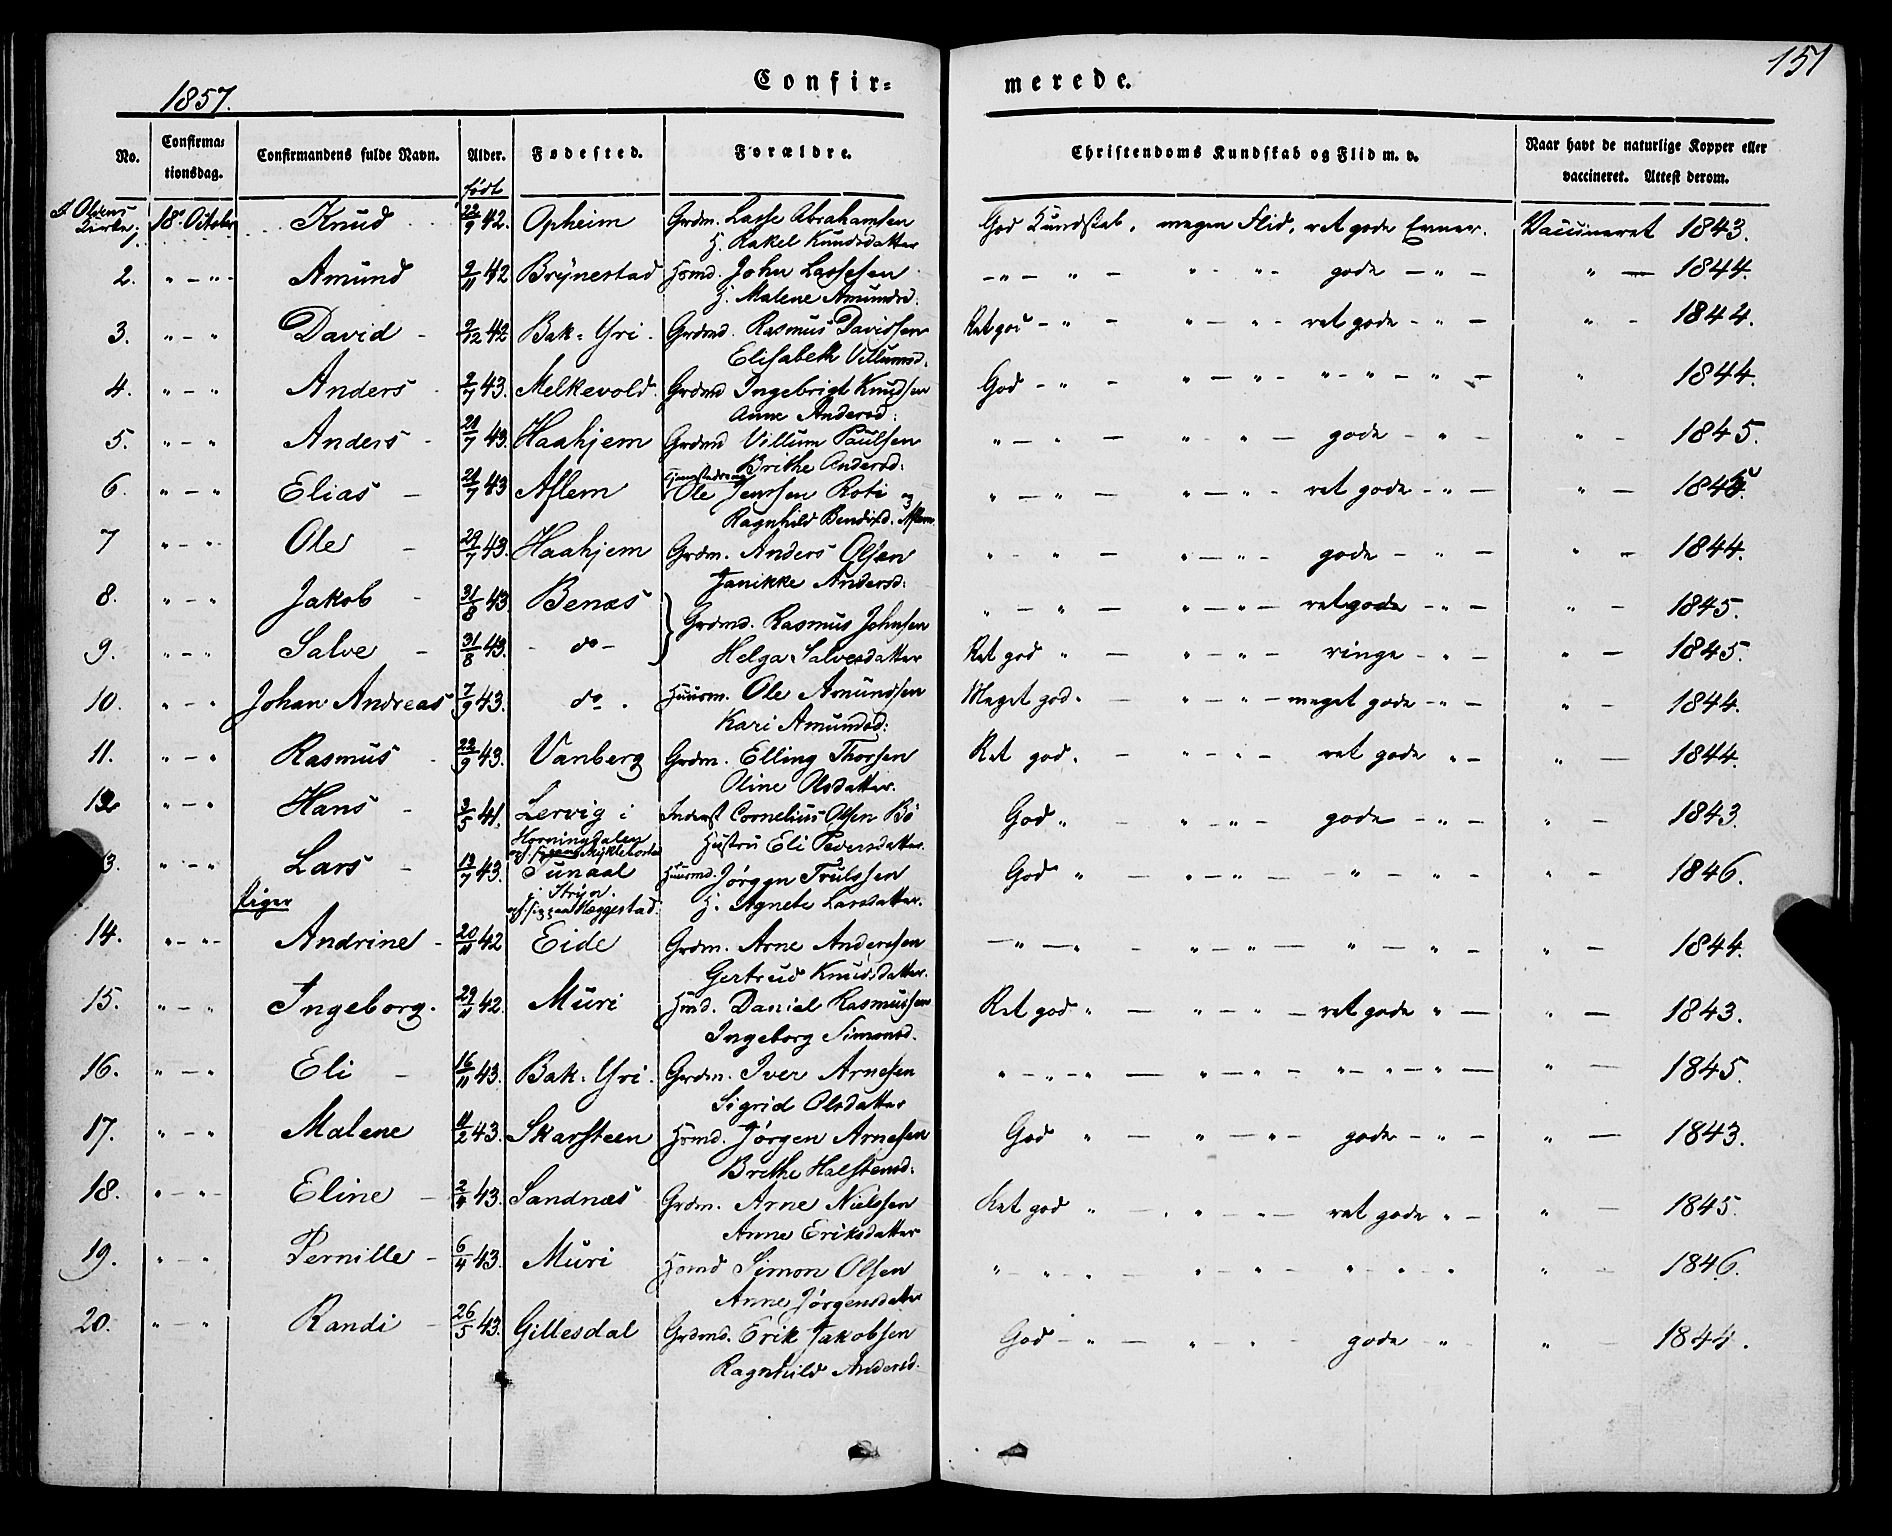 151
1857.
Confir= merede.
No. Confirma= tionsdag. Confirmandens fulde Navn. Alder. Fødested. Forældre. Christendoms Kundskab og Flid m. v. Naar havt de naturlige Kopper eller vaccineret. Attest derom.
født
I Oldens Kirke
1. 18. October Knud 22/9 42. Opheim Grdm. Lasse Abrahamsen God Kundskab, megen Flid, ret gode Evner. Vaccineret 1843.
H. Rakel Knudsdatter
2. " - " - Amund 9/11 42 Brynestad Hsmd. John Lassesen - " - " - " - " - gode - " - " - 1844.
H. Malene Amundsd.
3. " - " David - 9/12 42 Bak=Yri. Grdmd. Rasmus Davidsen Ret god - " - " - " - ret gode - " - " - 1844.
Elisabeth Villumsd.
4. " - " Anders 9/7 43. Melkevold. Grdmd Ingebrigt Knudsen God - " - " - " - " - " - " - " 1844.
Anne Andersd:
5. " - " Anders - 21/7 43. Haahjem Grdmd Villum Paulsen " - " - " - " - gode - " - " - 1845.
Brithe Andersd:
6. " - " Elias - 21/7 43 Aflem Ole Jenssen Roti og " - " - " - " - ret gode - " - " - 1845.
Ragnhild Bendixd. Aflem.
7 " - " Ole - 29/7 43. Haahjem Grdm. Anders Olsen " - " - " - " - gode - " - " - 1844.
Janikke Andersd:
8. " - " Jakob - 31/8 43. Benæs Grdmd. Rasmus Johnsen " - " - " - " - ret gode - " - " - 1845.
9. " - " Salve - 31/8 43. - do - Helga Salvesdatter Ret god " - " - " - ringe - " - " - 1845.
10. " - " Johan Andreas 7/9 43. do. Huusm. Ole Amundsen Meget god. " - " - " - meget gode - " - " - 1844.
Kari Amundsd:
11. " - " Rasmus 22/9 43. Vanberg Grdm. Elling Thorsen Ret god. - " - " - ret gode " - " - 1844.
Oline Olsdatter.
12 " - " Hans - 3/5 41. Lervig i Inderst Cornelius Olsen Bö God " - " - " - gode - " - " - 1843.
Horningdalen Hustru Eli Peversdatter.
3. " - " Lars - 13/7 43. Sunaal Huusmd. Jørgen Trulssen God " - " - " - " - " - " - 1846.
i Stryn. H. Agnete Larsdatter.
Piger
14. " - " - Andrine - 20/11 42 Eide Grdm. Arne Andersen - " - " - " - " - " - " - " - 1844.
Gertrud Knudsdatter.
15. " - " Ingeborg. 29/11 42. Muri Hmd. Daniel Rasmussen Ret god " - " - " - ret gode " - " - 1843.
Ingeborg Simonsd.
16. " - " Eli - 16/11 43. Bak=Yri. Grdm. Iver Arnesen " - " - " - " - " - " - " - " - 1845.
Sigrid Olsdatter
17. " - " Malene 11/2 43. Skarsteen Hsmd. Jørgen Arnesen God " - " - " - gode - " - " - 1843.
Brithe Halstensd:
18. " - " Eline - 2/4 43. Sandnæs Grdm. Arne Nielssen Ret god " - " - " - ret gode " - " - 1845.
Anne Eriksdatter
19. " - " Pernille - 6/4 43. Muri Hsmd Simon Olsen " - " - " - " - " - " - " - 1846.
Anne Jørgensdatter
20. " - " Randi - 26/5 43. Gillesdal Grdmd. Erik Jakobsen God - " - " - " - gode " - " - 1844.
Ragnhild Andersd.